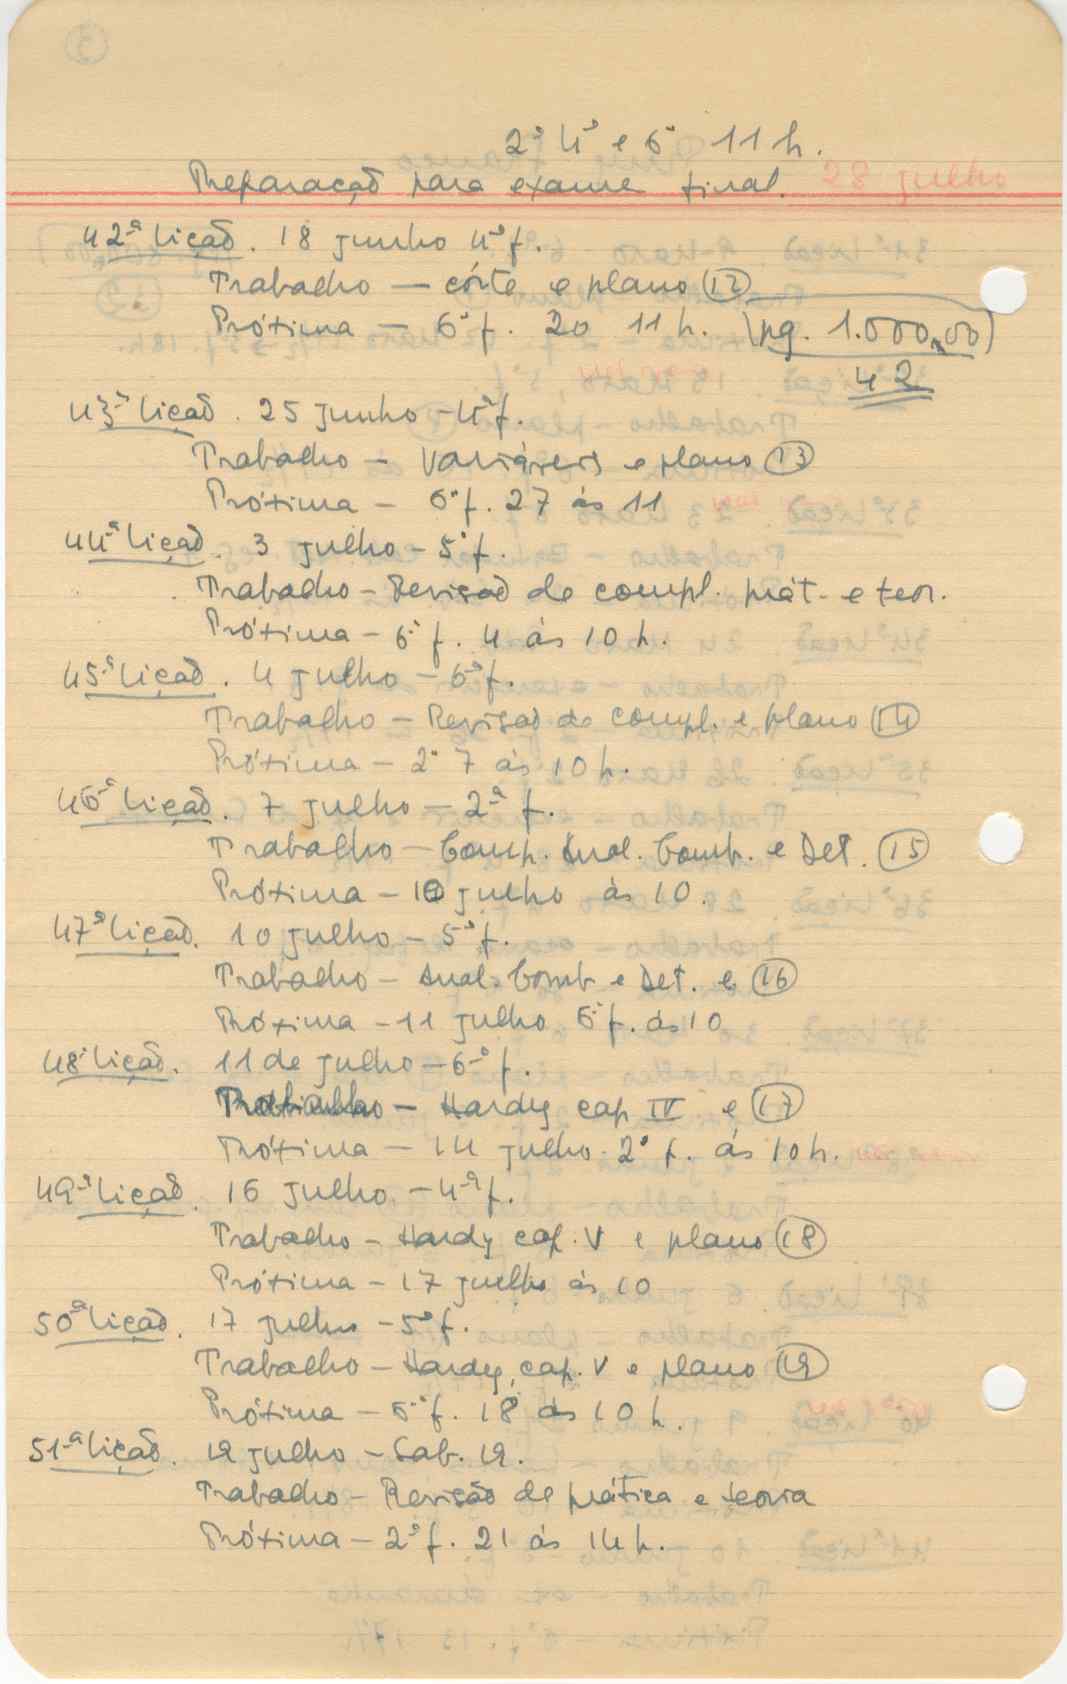 2ª 4ª e 6ª 11 h.
Preparação para exame final. 28 julho
42ª lição. 18 junho 4ª f.
Trabalho — córte e plano (12)
Próxima — 6ª f. 20 11 h. (pg. 1.000,00)
42
43ª lição. 25 junho - 4ª f.
Trabalho — Variáveis e plano (13)
Próxima — 6ª f. 27 às 11
44ª lição. 3 julho - 5ª f.
Trabalho - Revisão de compl. prát. e teor.
Próxima - 6ª f. 4 às 10 h.
45ª lição. 4 julho - 6ª f.
Trabalho — Revisão de compl. e plano (14)
Próxima — 2ª 7 às 10 h.
46ª lição. 7 julho — 2ª f.
Trabalho — Comp. Anal. Comb. e Det. (15)
Próxima — 10 julho às 10.
47ª lição. 10 julho - 5ª f.
Trabalho - Anal. Comb e Det. e (16)
Próxima - 11 julho 6ª f. às 10
48ª lição. 11 de julho - 6ª f.
Trabalho — Hardy cap IV e (17)
Próxima — 14 julho. 2ª f. às 10 h.
49ª lição. 16 julho. - 4ª f.
Trabalho - Hardy cap. V e plano (18)
Próxima - 17 julho às 10
50ª lição. 17 julho - 5ª f.
Trabalho - Hardy, cap. V e plano (19)
Próxima - 6ª f. 18 às 10 h.
51ª lição. 19 julho - Sab. 19.
Trabalho - Revisão de prática e teoria
Próxima - 2ª f. 21 às 14 h.